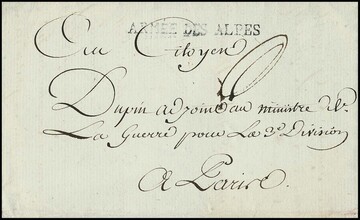 ARMÉE DES ALPES
Au Citoyen
Dupin adjoint au ministre de
La Guerre pour La 2e Division
A Paris.